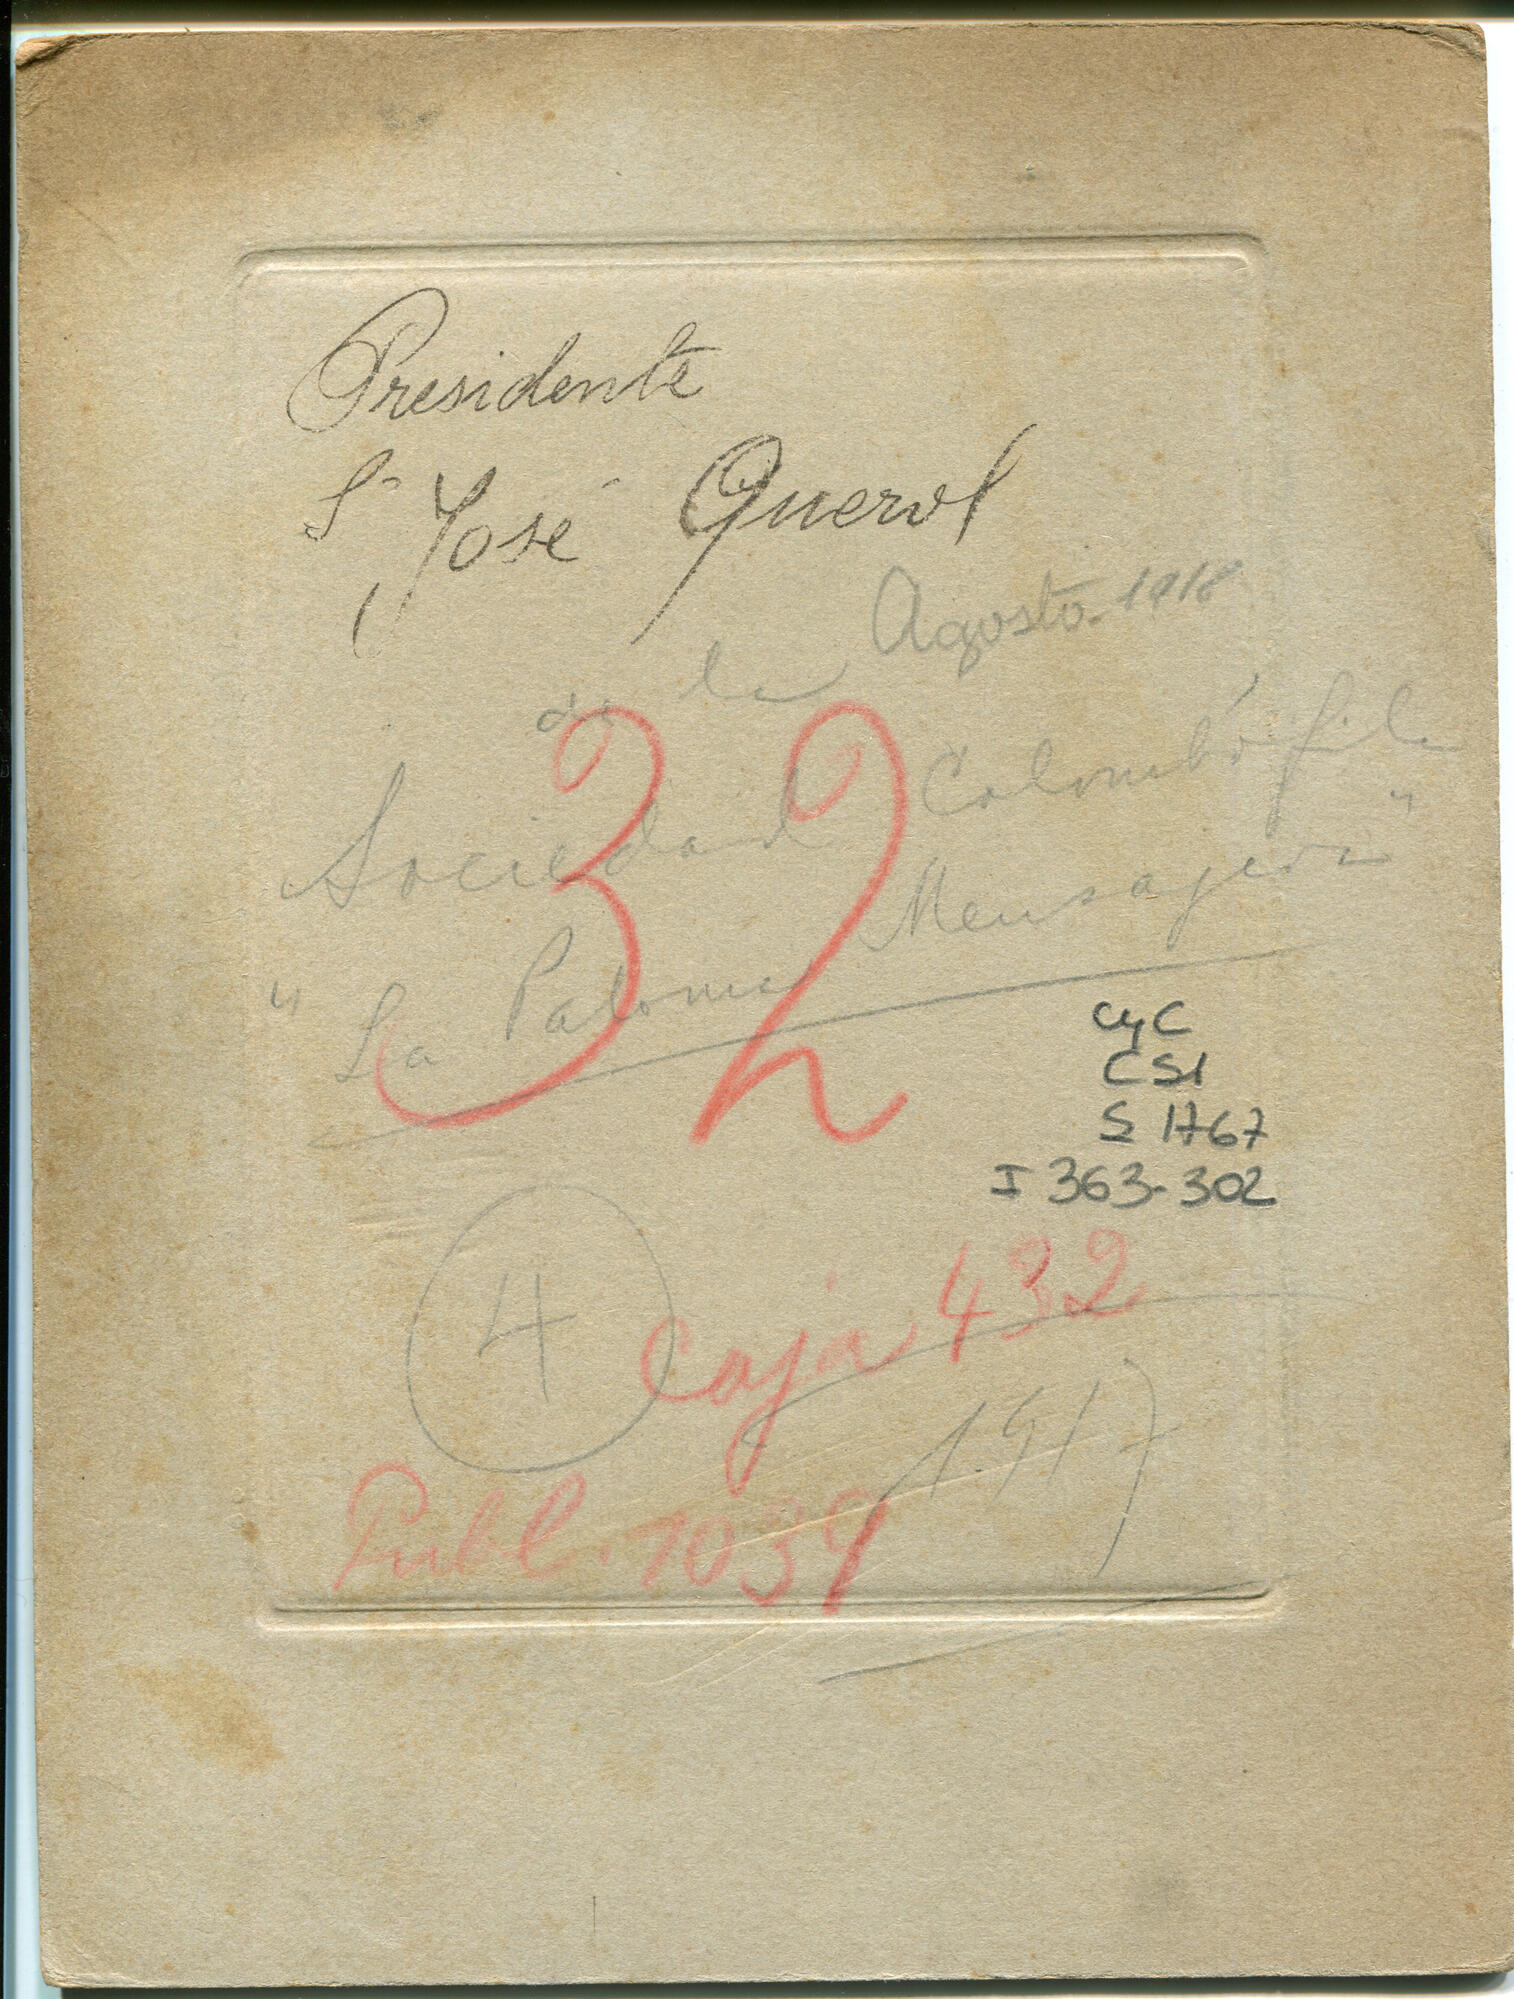 Presidente
Sr José Querol
Agosto-1918
de la
Sociedad Colombófila
"La Paloma Mensajera"
32
CyC
CS1
S 1767
I 363-302
4
Caja 432
1917
Publ. 1039